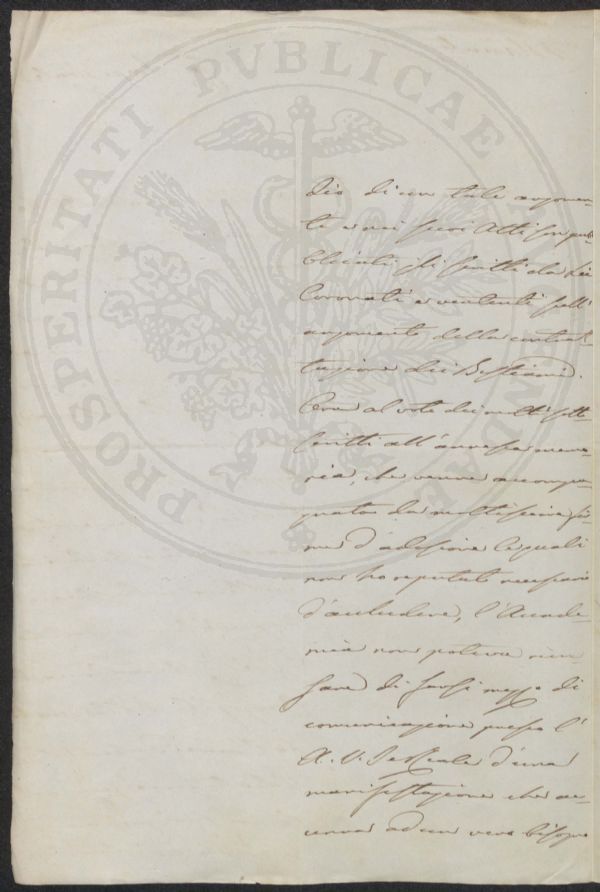 PROSPERITATI PVBLICAE AVGENDAE
dio di un tale argomen-
to e nei suoi Atti fur pub-
blicati gli scritti da lei
Coronati e vertenti sull'
argomento della contrat-
tazione dei Bestiami.
Ora al voto dei molti sott-
scritti all'annessa memo-
ria, che venne accompa-
gnata da moltissime fir-
me d'adesione le quali
non ho reputato necessario
d'accludere, l'Accade-
mia non poteva ricu-
sare di farsi mezzo di
comunicazione presso l'
A. V. Imperiale d'una
manifestazione che ac-
cenna ad un vero bisogno